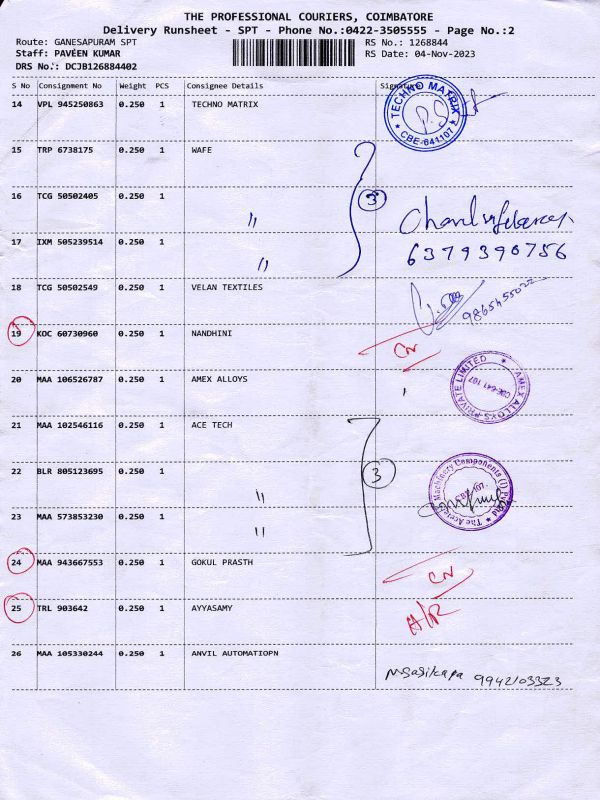 THE PROFESSIONAL COURIERS, COIMBATORE
Delivery Runsheet - SPT - Phone No.:0422-3505555 - Page No.:2
Route: GANESAPURAM SPT RS No.: 1268844
Staff: PAVEEN KUMAR RS Date: 04-Nov-2023
DRS No.: DCJB126884402
S No Consignment No Weight PCS Consignee Details Signature
14 VPL 945250863 0.250 1 TECHNO MATRIX
TECHNO MATRIX
CBE-641107
15 TRP 6738175 0.250 1 WAFE
16 TCG 50502405 0.250 1 3
"
17 IXM 505239514 0.250 1 6379390756
"
18 TCG 50502549 0.250 1 VELAN TEXTILES
19 KOC 60730960 0.250 1 NANDHINI CN
20 MAA 106526787 0.250 1 AMEX ALLOYS
AMEX ALLOYS PRIVATE LIMITED
CBE-641 107
21 MAA 102546116 0.250 1 ACE TECH
22 BLR 805123695 0.250 1 3
"
23 MAA 573853230 0.250 1
"
24 MAA 943667553 0.250 1 GOKUL PRASTH CN
25 TRL 903642 0.250 1 AYYASAMY A/R
26 MAA 105330244 0.250 1 ANVIL AUTOMATIOPN
9942103323